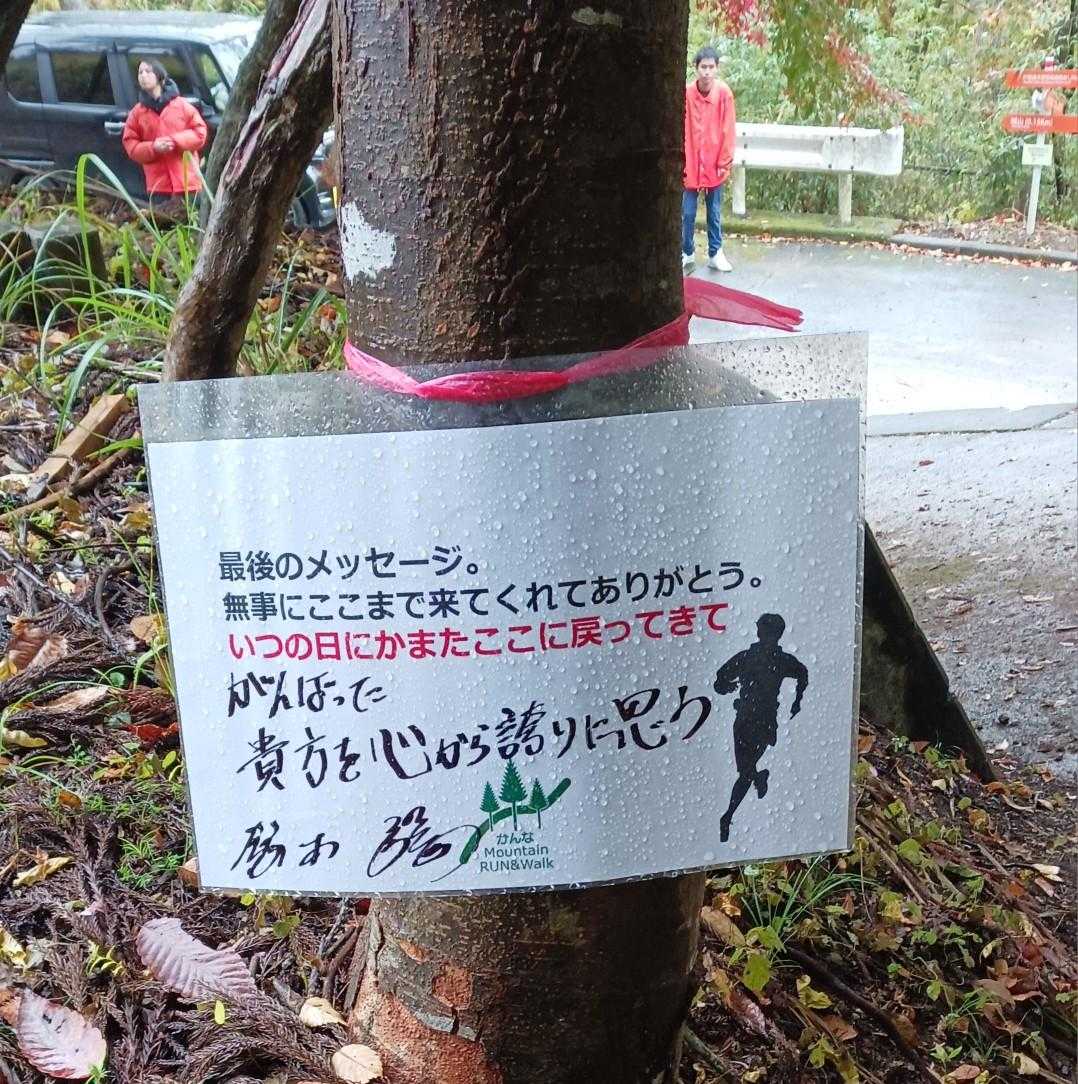 最後のメッセージ。
無事にここまで来てくれてありがとう。
いつの日にかまたここに戻ってきて
がんばった
貴方を心から誇りに思う
かんな
Mountain
RUN&Walk